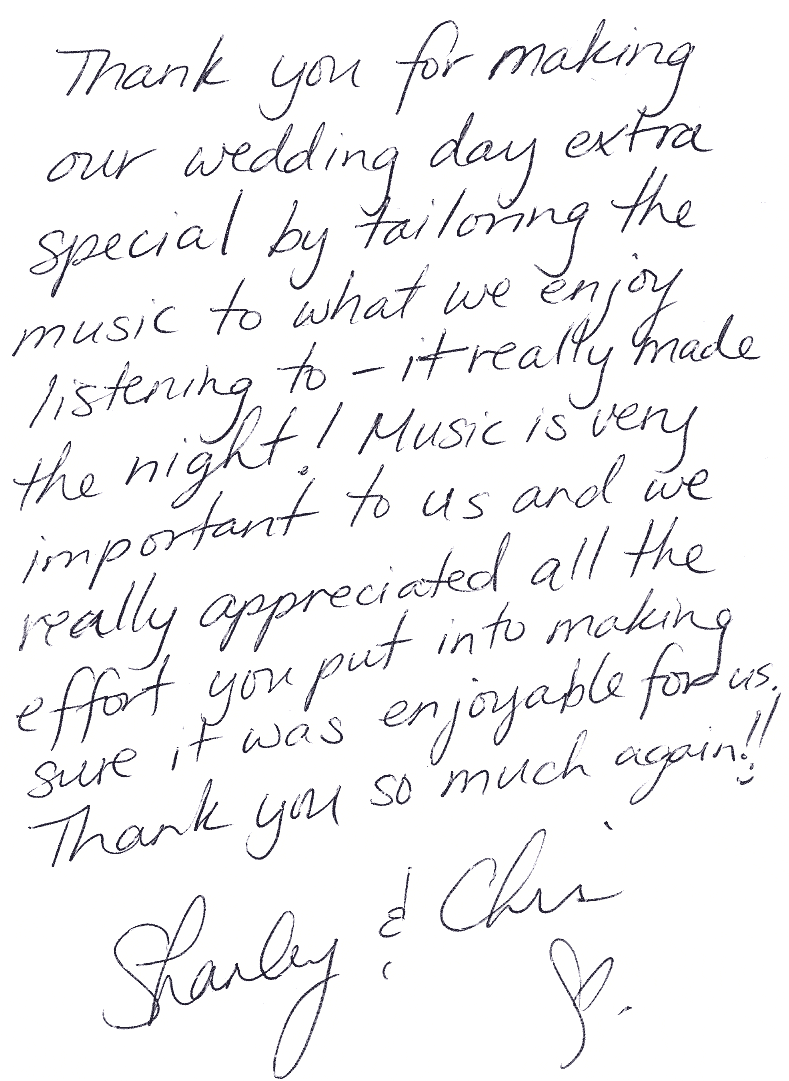 Thank you for making
our wedding day extra
special by tailoring the
music to what we enjoy
listening to – it really made
the night! Music is very
important to us and we
really appreciated all the
effort you put into making
sure it was enjoyable for us.
Thank you so much again!!
& Chris